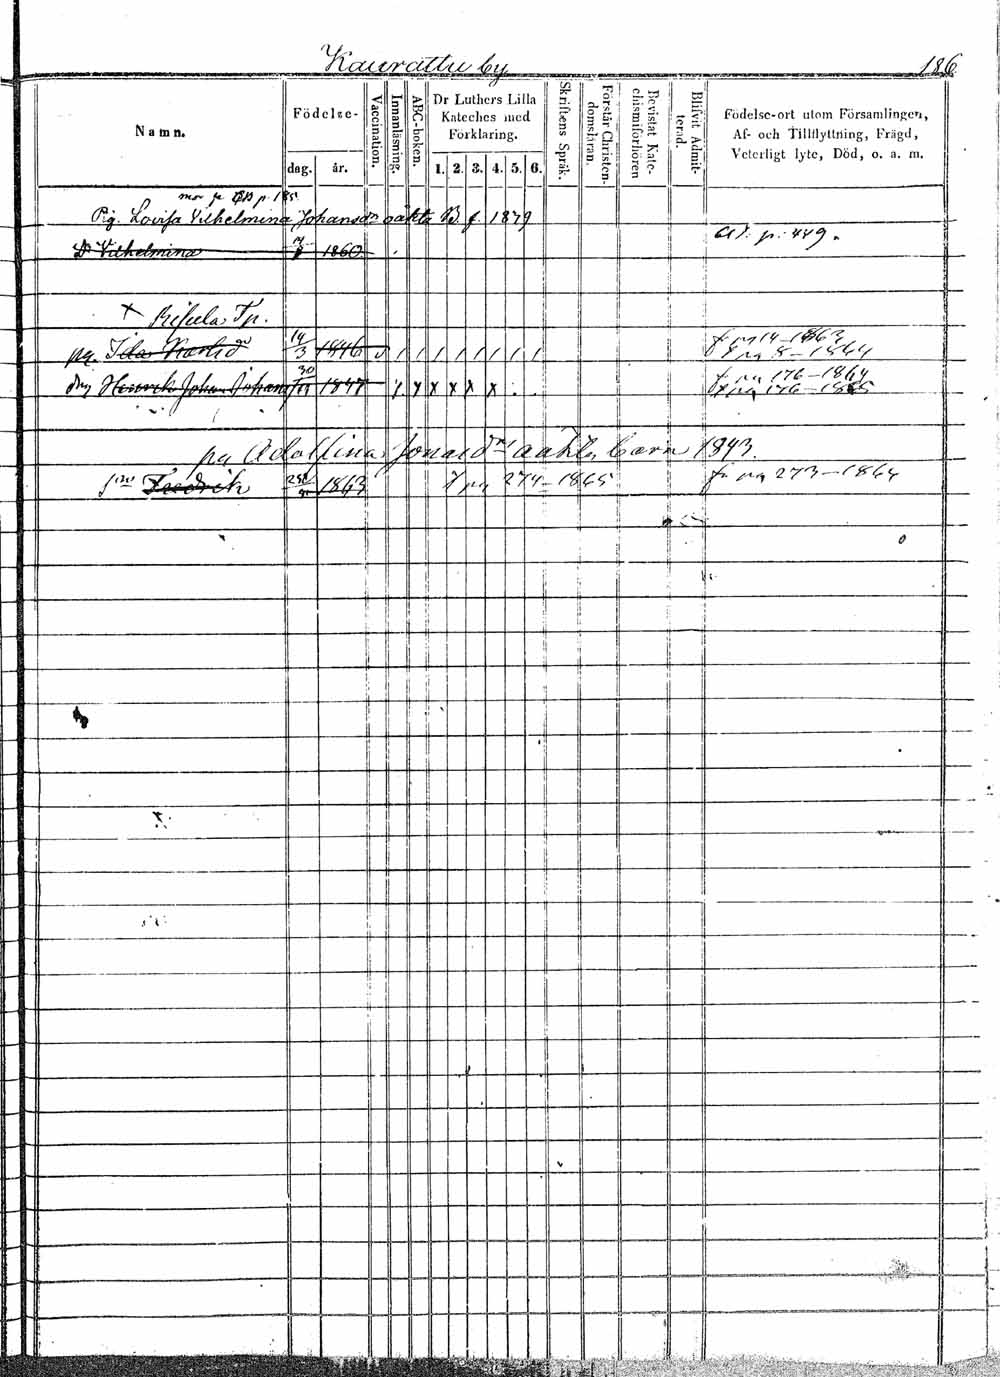 Kaurattu by 186
Namn.
Födelse-
dag. år.
Vaccination.
Innanläsning.
ABC-boken.
Dr Luthers Lilla
Kateches med
Förklaring.
1. 2. 3. 4. 5. 6.
Skriftens Språk.
Förstår Christen-
domsläran.
Bevistat Kate-
chismiförhören
Blifvit Admit-
terad.
Födelse-ort utom Församlingen,
Af- och Tillflyttning, Frägd,
Veterligt lyte, Död, o. a. m.
p. 185
Pig. Lovisa Vilhelmina Johansdr oäkta B. f. 1879
Dr Vilhelmina 1860
p. 449.
Tp.
pg. Ida 14/3 1846 v
14-1863
8-1864
Henrik Johan 30 1847 x x x x x
176-1864
176-1865
pg Adolfina oäkta barn 1843
Fredrik 1863 274-1865 273-1864